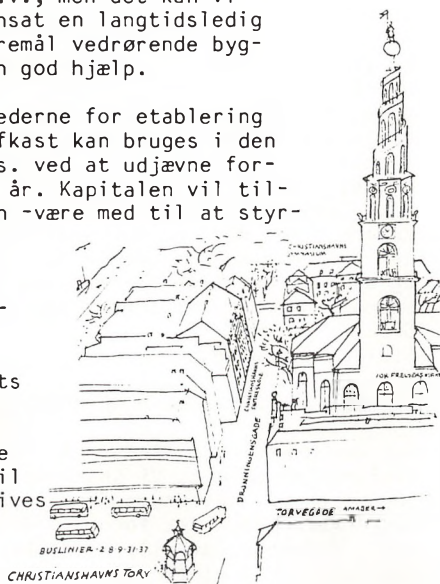 nsat en langtidsledig
remål vedrørende byg-
n god hjælp.
ederne for etablering
fkast kan bruges i den
s. ved at udjævne for-
år. Kapitalen vil til-
n -være med til at styr-
CHRISTIANSHAVNS
GYMNASIUM
ts
e
il
ives
VOR FRELSERS KIRKE
DRONNINGENSGADE
TORVEGADE AMAGER→
BUSLINIER - 2 8 9 - 31 - 37
CHRISTIANSHAVNS TORV